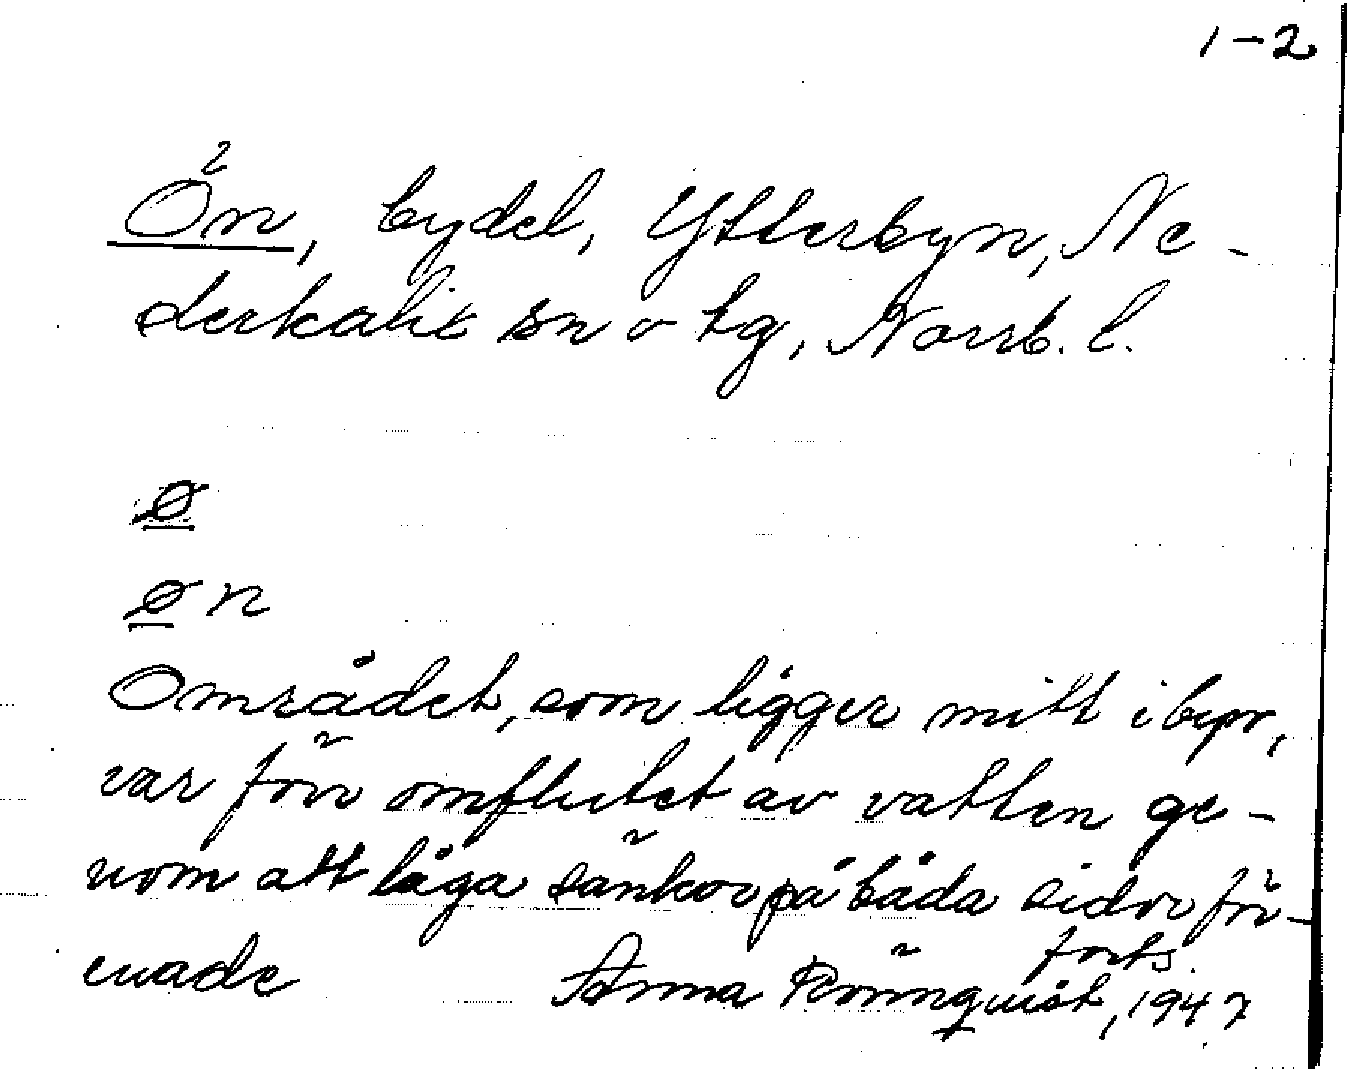 1-2
Ön, bydel, Ytterbyn, Ne-
derkalix sn o tg, Norrb. l.
ø
øn
Området, som ligger mitt i byn,
var förr omflutet av vatten ge-
nom att låga sänkor på båda sidor för-
enade
forts.
Anna Rönnquist, 1947